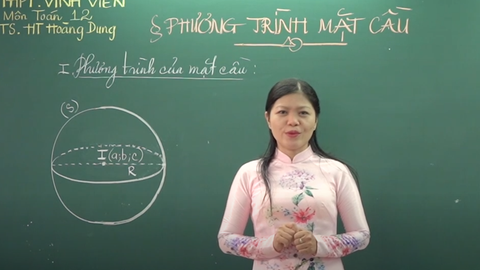 THPT. VĨNH VIỄN
Môn Toán 12
TS. HT Hoàng Dung
§ PHƯƠNG TRÌNH MẶT CẦU
I. Phương trình của mặt cầu :
(S)
I (a;b;c)
R